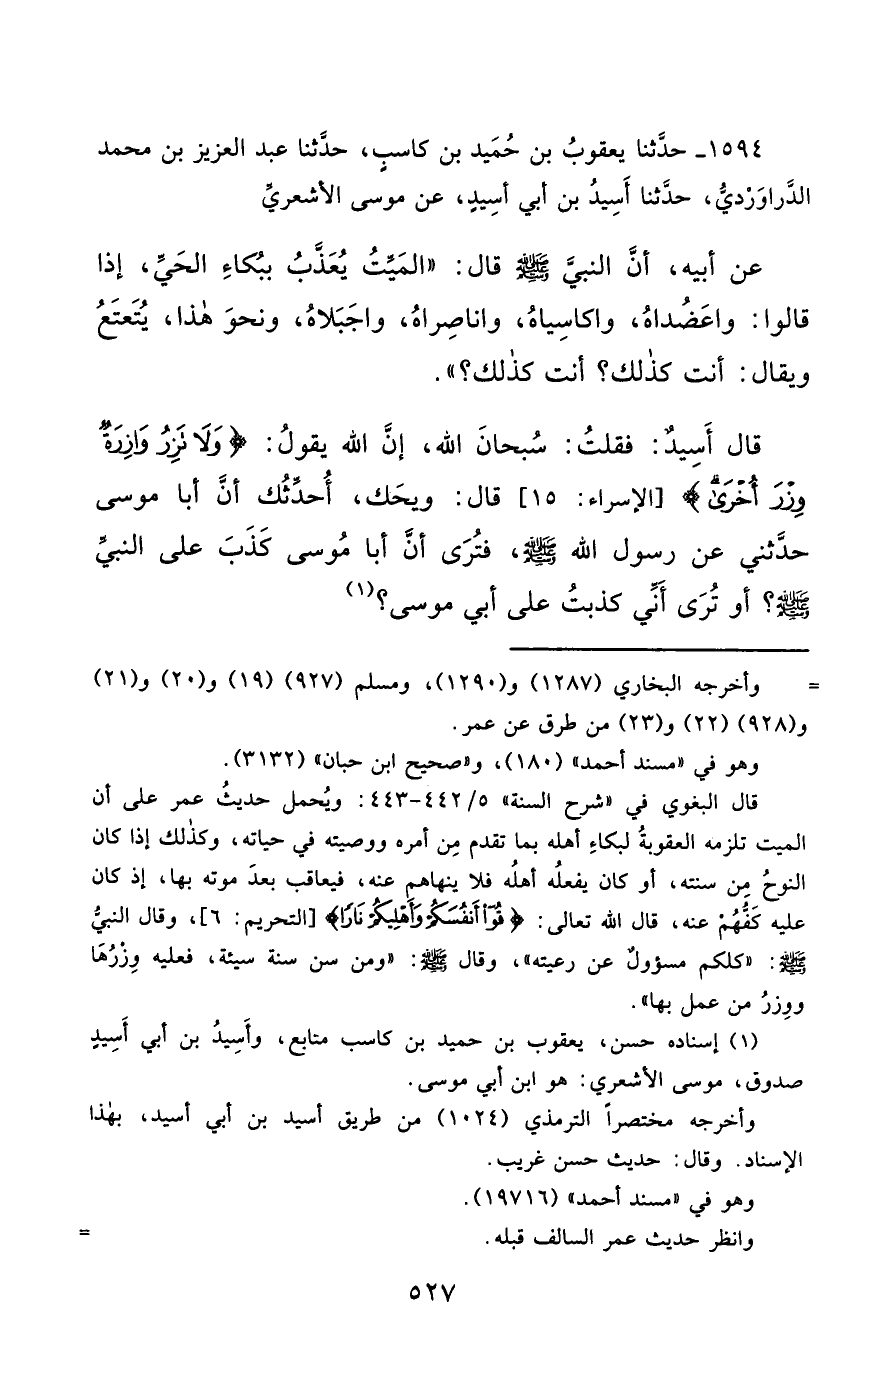 ١٥٩٤ـ حدَّثنا يعقوبُ بن حُمَيد بن كاسبٍ، حدَّثنا عبد العزيز بن محمد
الدَّراوَرْديُّ، حدَّثنا أَسِيدُ بن أبي أسِيدٍ، عن موسى الأشعريِّ
عن أبيه، أنَّ النبيَّ ﷺ قال: «المَيِّتُ يُعَذَّبُ ببُكاءِ الحَيِّ، إذا
قالوا: واعَضُداهُ، واكاسِياهُ، واناصِراهُ، واجَبَلاهُ، ونحوَ هٰذا، يُتَعتَعُ
ويقال: أنت كذٰلك؟ أنت كذٰلك؟».
قال أَسِيدٌ: فقلتُ: سُبحانَ الله، إنَّ الله يقولُ: ﴿وَلَا نَزِرُ وَازِرَةٌ
وِزْرَ أُخْرَىٰ﴾ [الإسراء: ١٥] قال: ويحَك، أُحدِّثُك أنَّ أبا موسى
حدَّثني عن رسول الله ﷺ، فتُرَى أنَّ أبا مُوسى كَذَبَ على النبيِّ
ﷺ؟ أو تُرَى أَنِّي كذبتُ على أبي موسى؟(١)
= وأخرجه البخاري (١٢٨٧) و(١٢٩٠)، ومسلم (٩٢٧) (١٩) و(٢٠) و(٢١)
و(٩٢٨) (٢٢) و(٢٣) من طرق عن عمر.
وهو في «مسند أحمد» (١٨٠)، و«صحيح ابن حبان» (٣١٣٢).
قال البغوي في «شرح السنة» ٤٤٢/٥-٤٤٣: ويُحمل حديثُ عمر على أن
الميت تلزمه العقوبةُ لبكاءِ أهله بما تقدم مِن أمره ووصيته في حياته، وكذٰلك إذا كان
النوحُ مِن سنته، أو كان يفعلُه أهلُه فلا ينهاهم عنه، فيعاقب بعدَ موته بها، إذ كان
عليه كَفُّهُمْ عنه، قال الله تعالى: ﴿قُوٓا۟ أَنفُسَكُمْ وَأَهْلِيكُمْ نَارًا﴾ [التحريم: ٦]، وقال النبيُّ
ﷺ: «كلكم مسؤولٌ عن رعيته»، وقال ﷺ: «ومن سن سنة سيئة، فعليه وِزْرُهَا
ووِزرُ من عمل بها».
(١) إسناده حسن، يعقوب بن حميد بن كاسب متابع، وأَسِيدُ بن أبي أَسِيدٍ
صدوق، موسى الأشعري: هو ابن أبي موسى.
وأخرجه مختصراً الترمذي (١٠٢٤) من طريق أسيد بن أبي أسيد، بهٰذا
الإسناد. وقال: حديث حسن غريب.
وهو في «مسند أحمد» (١٩٧١٦).
وانظر حديث عمر السالف قبله. =
٥٢٧